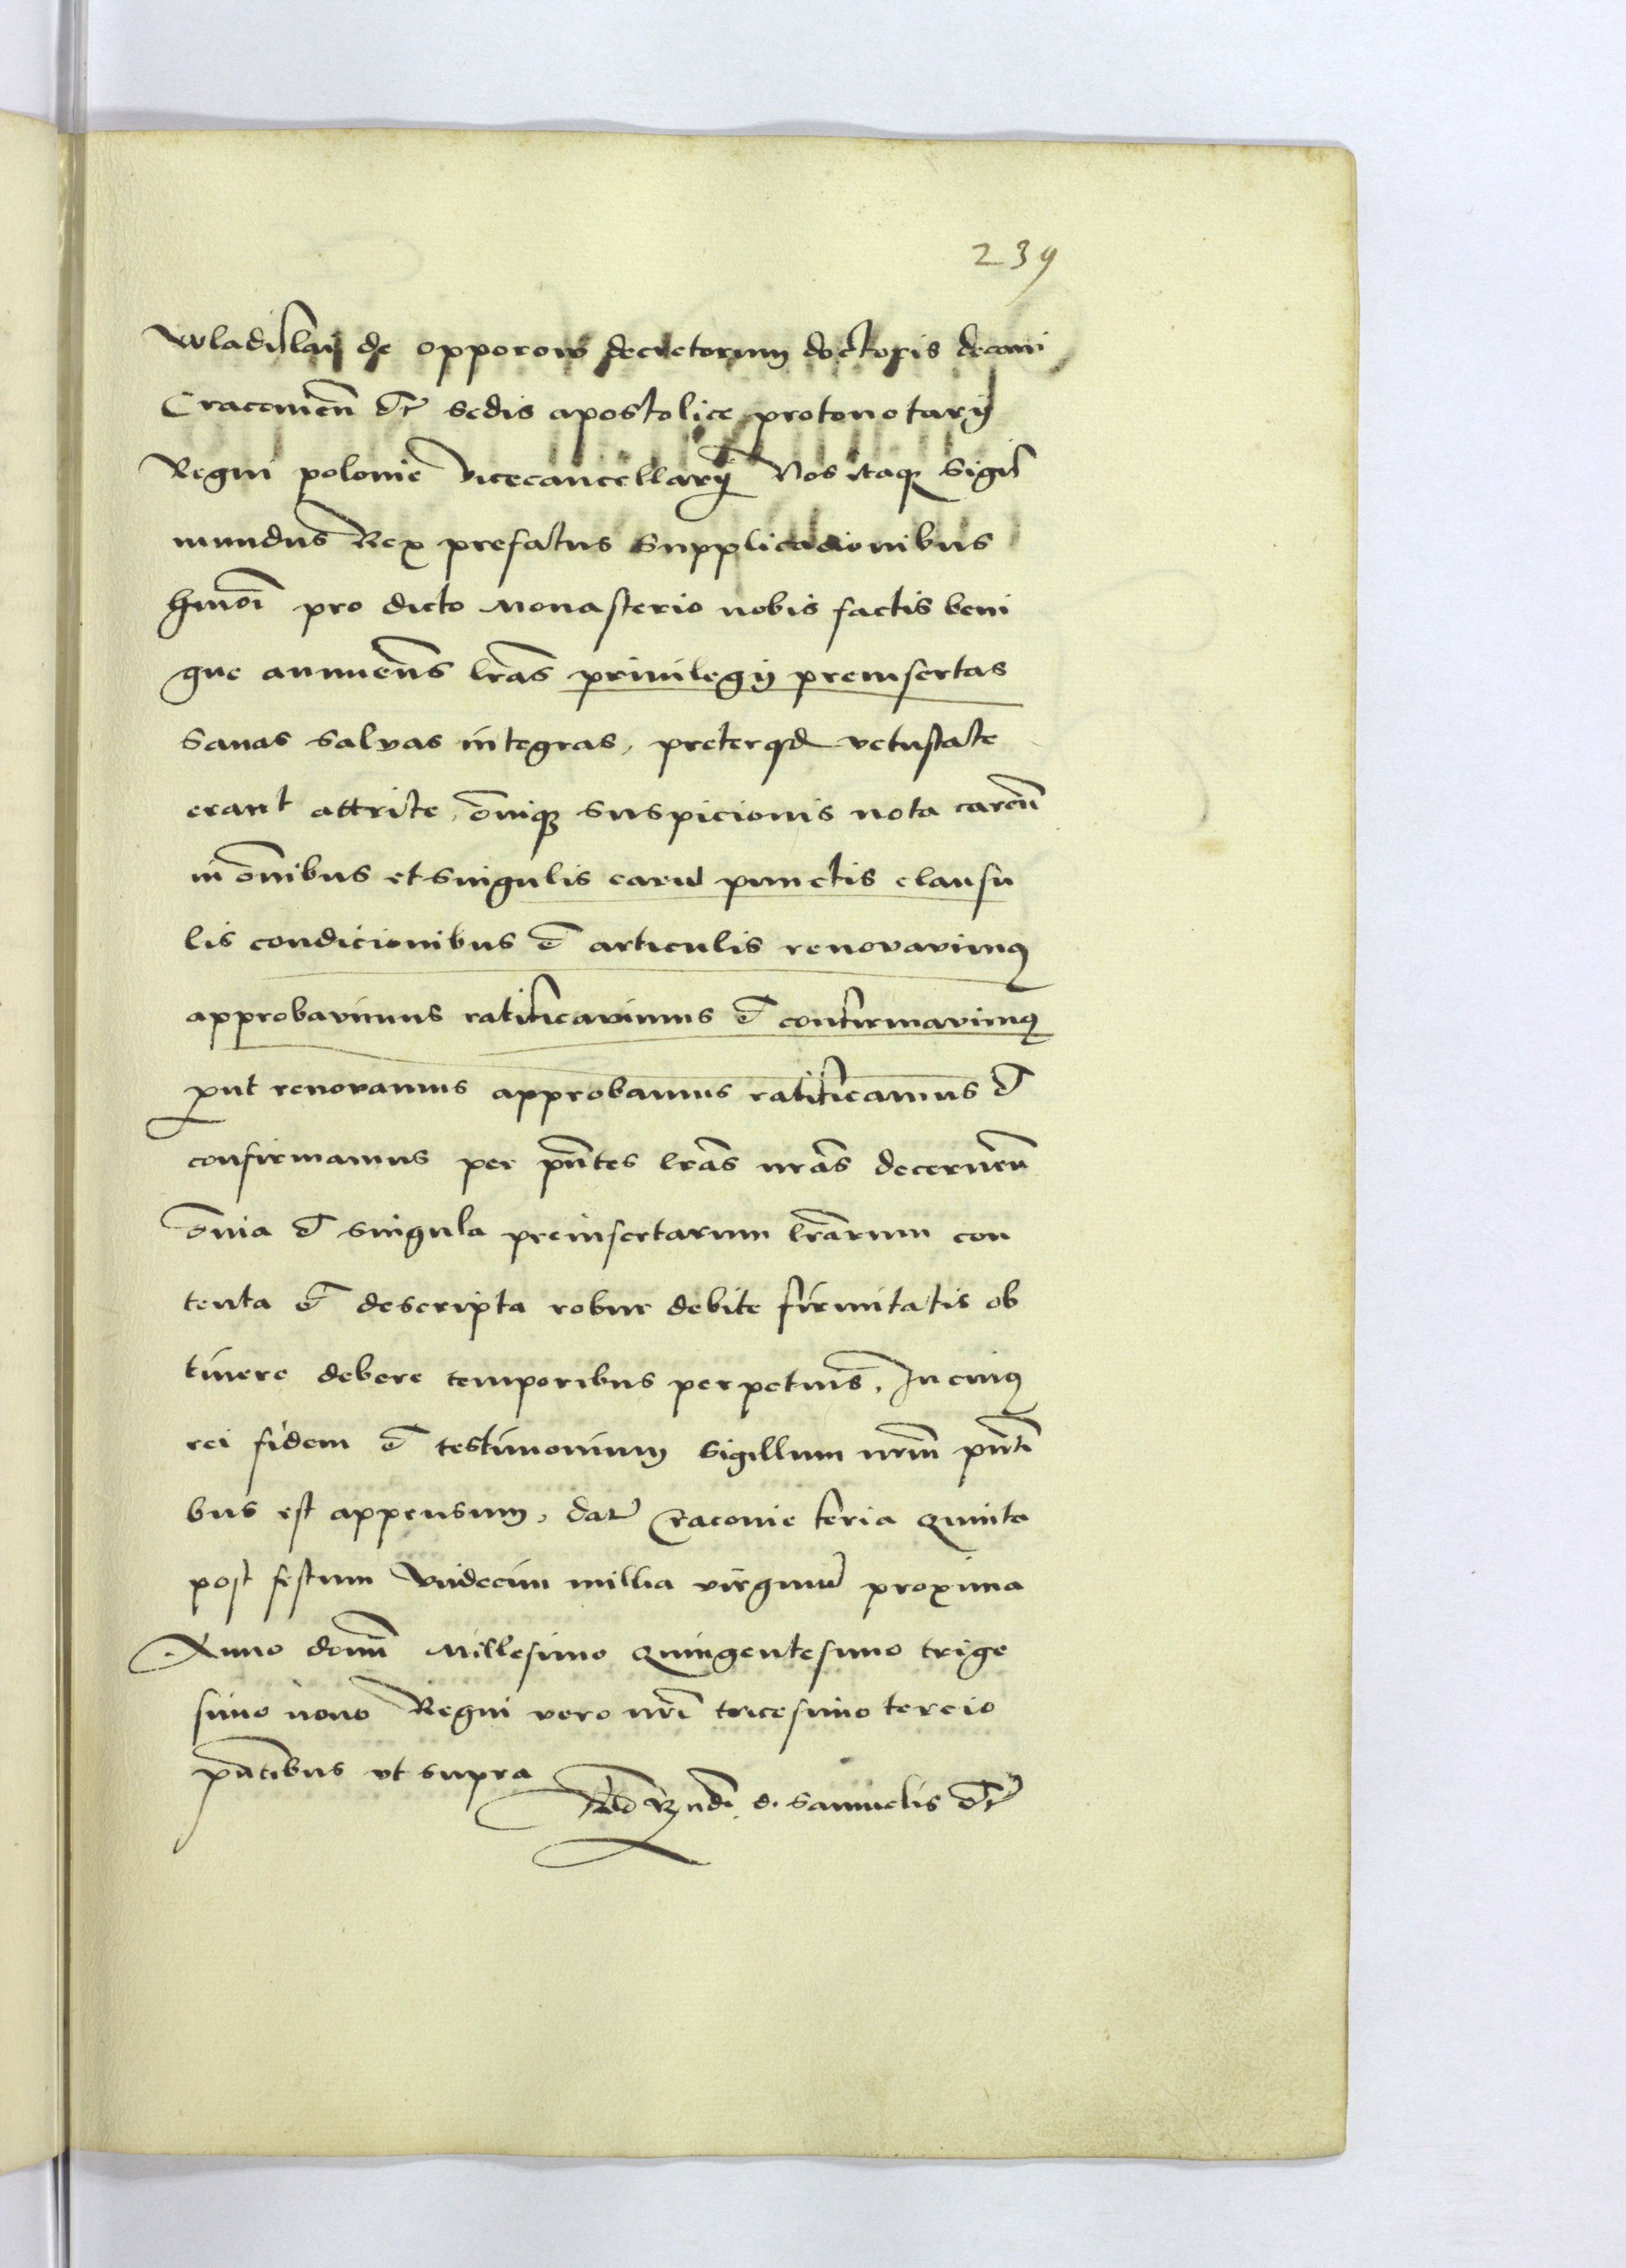 239
Wladislai de Opporow decretorum doctoris decani
Cracovien̄ etc̄ sedis apostolice protonotarij
Regni polonie vicecancellarij Nos itaqꝫ Sigis
mundus Rex prefatus Supplicacionibus
hmōi pro dicto Monasterio nobis factis beni
gne annuen̄s lr̄as priuilegij preinsertas
sanas salvas integras, preterqꝫ vetustate
erant attrite, om̄iqꝫ suspicionis nota caren̄
in om̄ibus et singulis earū punctis clausu
lis condicionibus et articulis renovavimꝰ
approbavimus ratificavimus et confirmavimꝰ
ꝓut renovamus approbamus ratificamus et
confirmamus per pn̄tes lr̄as nr̄as decernen̄
om̄ia et singula preinsertarum lr̄arum con
tenta et descripta robur debite firmitatis ob
tinere debere temporibus perpetuis, In cuiꝰ
rei fidem et testimonium Sigillum nr̄m pn̄ti
bus est appensum, dat̄ Cracovie feria Quinta
post festum Vndecim millia virginū proxima
Anno domī Millesimo Quingentesimo trige
simo nono Regni vero nr̄i tricesimo tercio
pn̄tibus vt supra
Rn̄di d. Samuelis etc̄